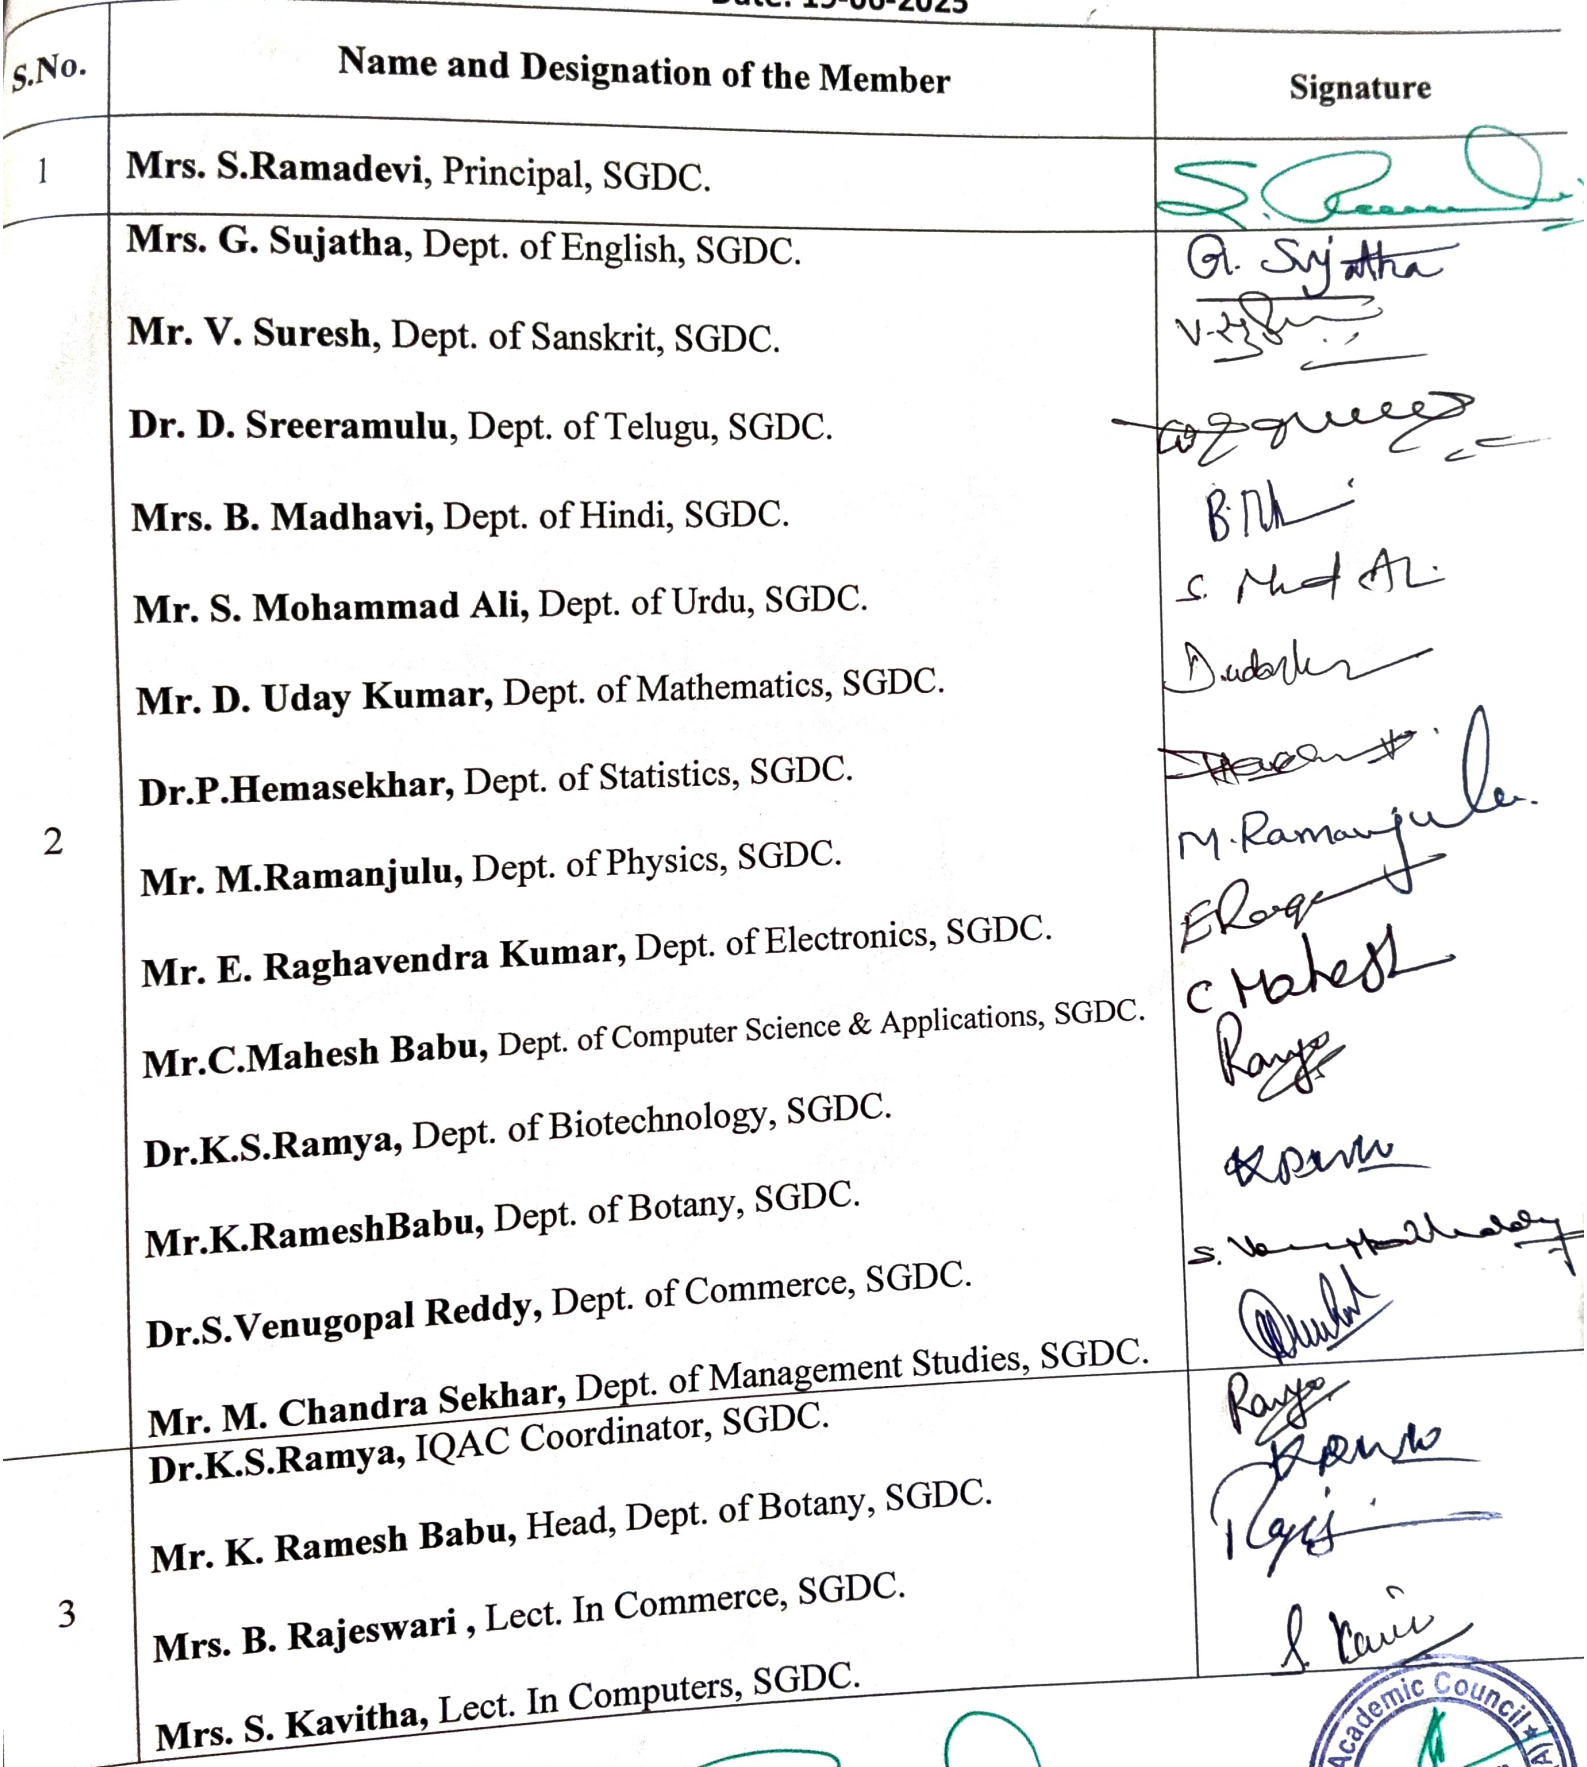 S.No. Name and Designation of the Member Signature
1 Mrs. S.Ramadevi, Principal, SGDC.
Mrs. G. Sujatha, Dept. of English, SGDC. G. Sujatha
Mr. V. Suresh, Dept. of Sanskrit, SGDC.
Dr. D. Sreeramulu, Dept. of Telugu, SGDC.
Mrs. B. Madhavi, Dept. of Hindi, SGDC.
Mr. S. Mohammad Ali, Dept. of Urdu, SGDC.
Mr. D. Uday Kumar, Dept. of Mathematics, SGDC.
Dr.P.Hemasekhar, Dept. of Statistics, SGDC.
2
Mr. M.Ramanjulu, Dept. of Physics, SGDC. M.Ramanjulu
Mr. E. Raghavendra Kumar, Dept. of Electronics, SGDC.
Mr.C.Mahesh Babu, Dept. of Computer Science & Applications, SGDC. C Mahesh
Dr.K.S.Ramya, Dept. of Biotechnology, SGDC.
Mr.K.RameshBabu, Dept. of Botany, SGDC.
Dr.S.Venugopal Reddy, Dept. of Commerce, SGDC.
Mr. M. Chandra Sekhar, Dept. of Management Studies, SGDC.
Dr.K.S.Ramya, IQAC Coordinator, SGDC.
Mr. K. Ramesh Babu, Head, Dept. of Botany, SGDC.
3
Mrs. B. Rajeswari , Lect. In Commerce, SGDC.
Mrs. S. Kavitha, Lect. In Computers, SGDC.
Academic Council